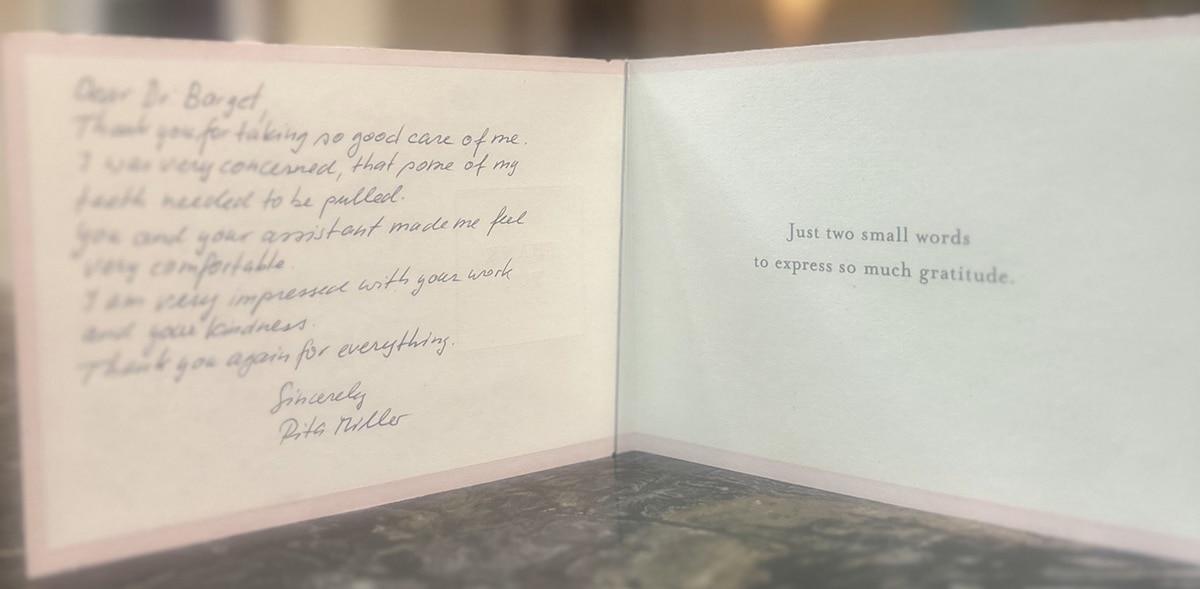 Dear Dr Barget,
Thank you for taking so good care of me.
I was very concerned, that some of my
teeth needed to be pulled.
You and your assistant made me feel
very comfortable.
I am very impressed with your work
and your kindness.
Thank you again for everything.
Sincerely
Rita Miller
Just two small words
to express so much gratitude.